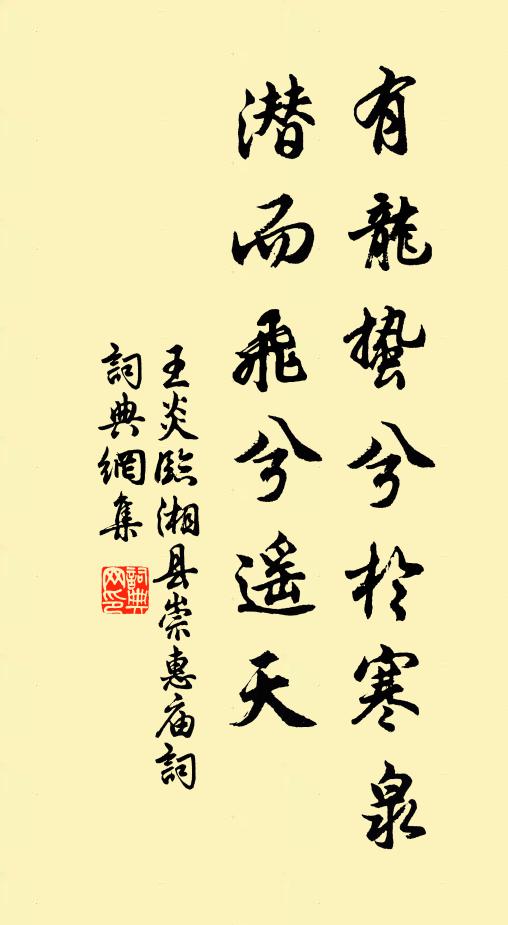 有龍蟄兮於寒泉
潜而飛兮遥天
王炎臨湘县崇惠庙詞
詞典網集
詞典
网印